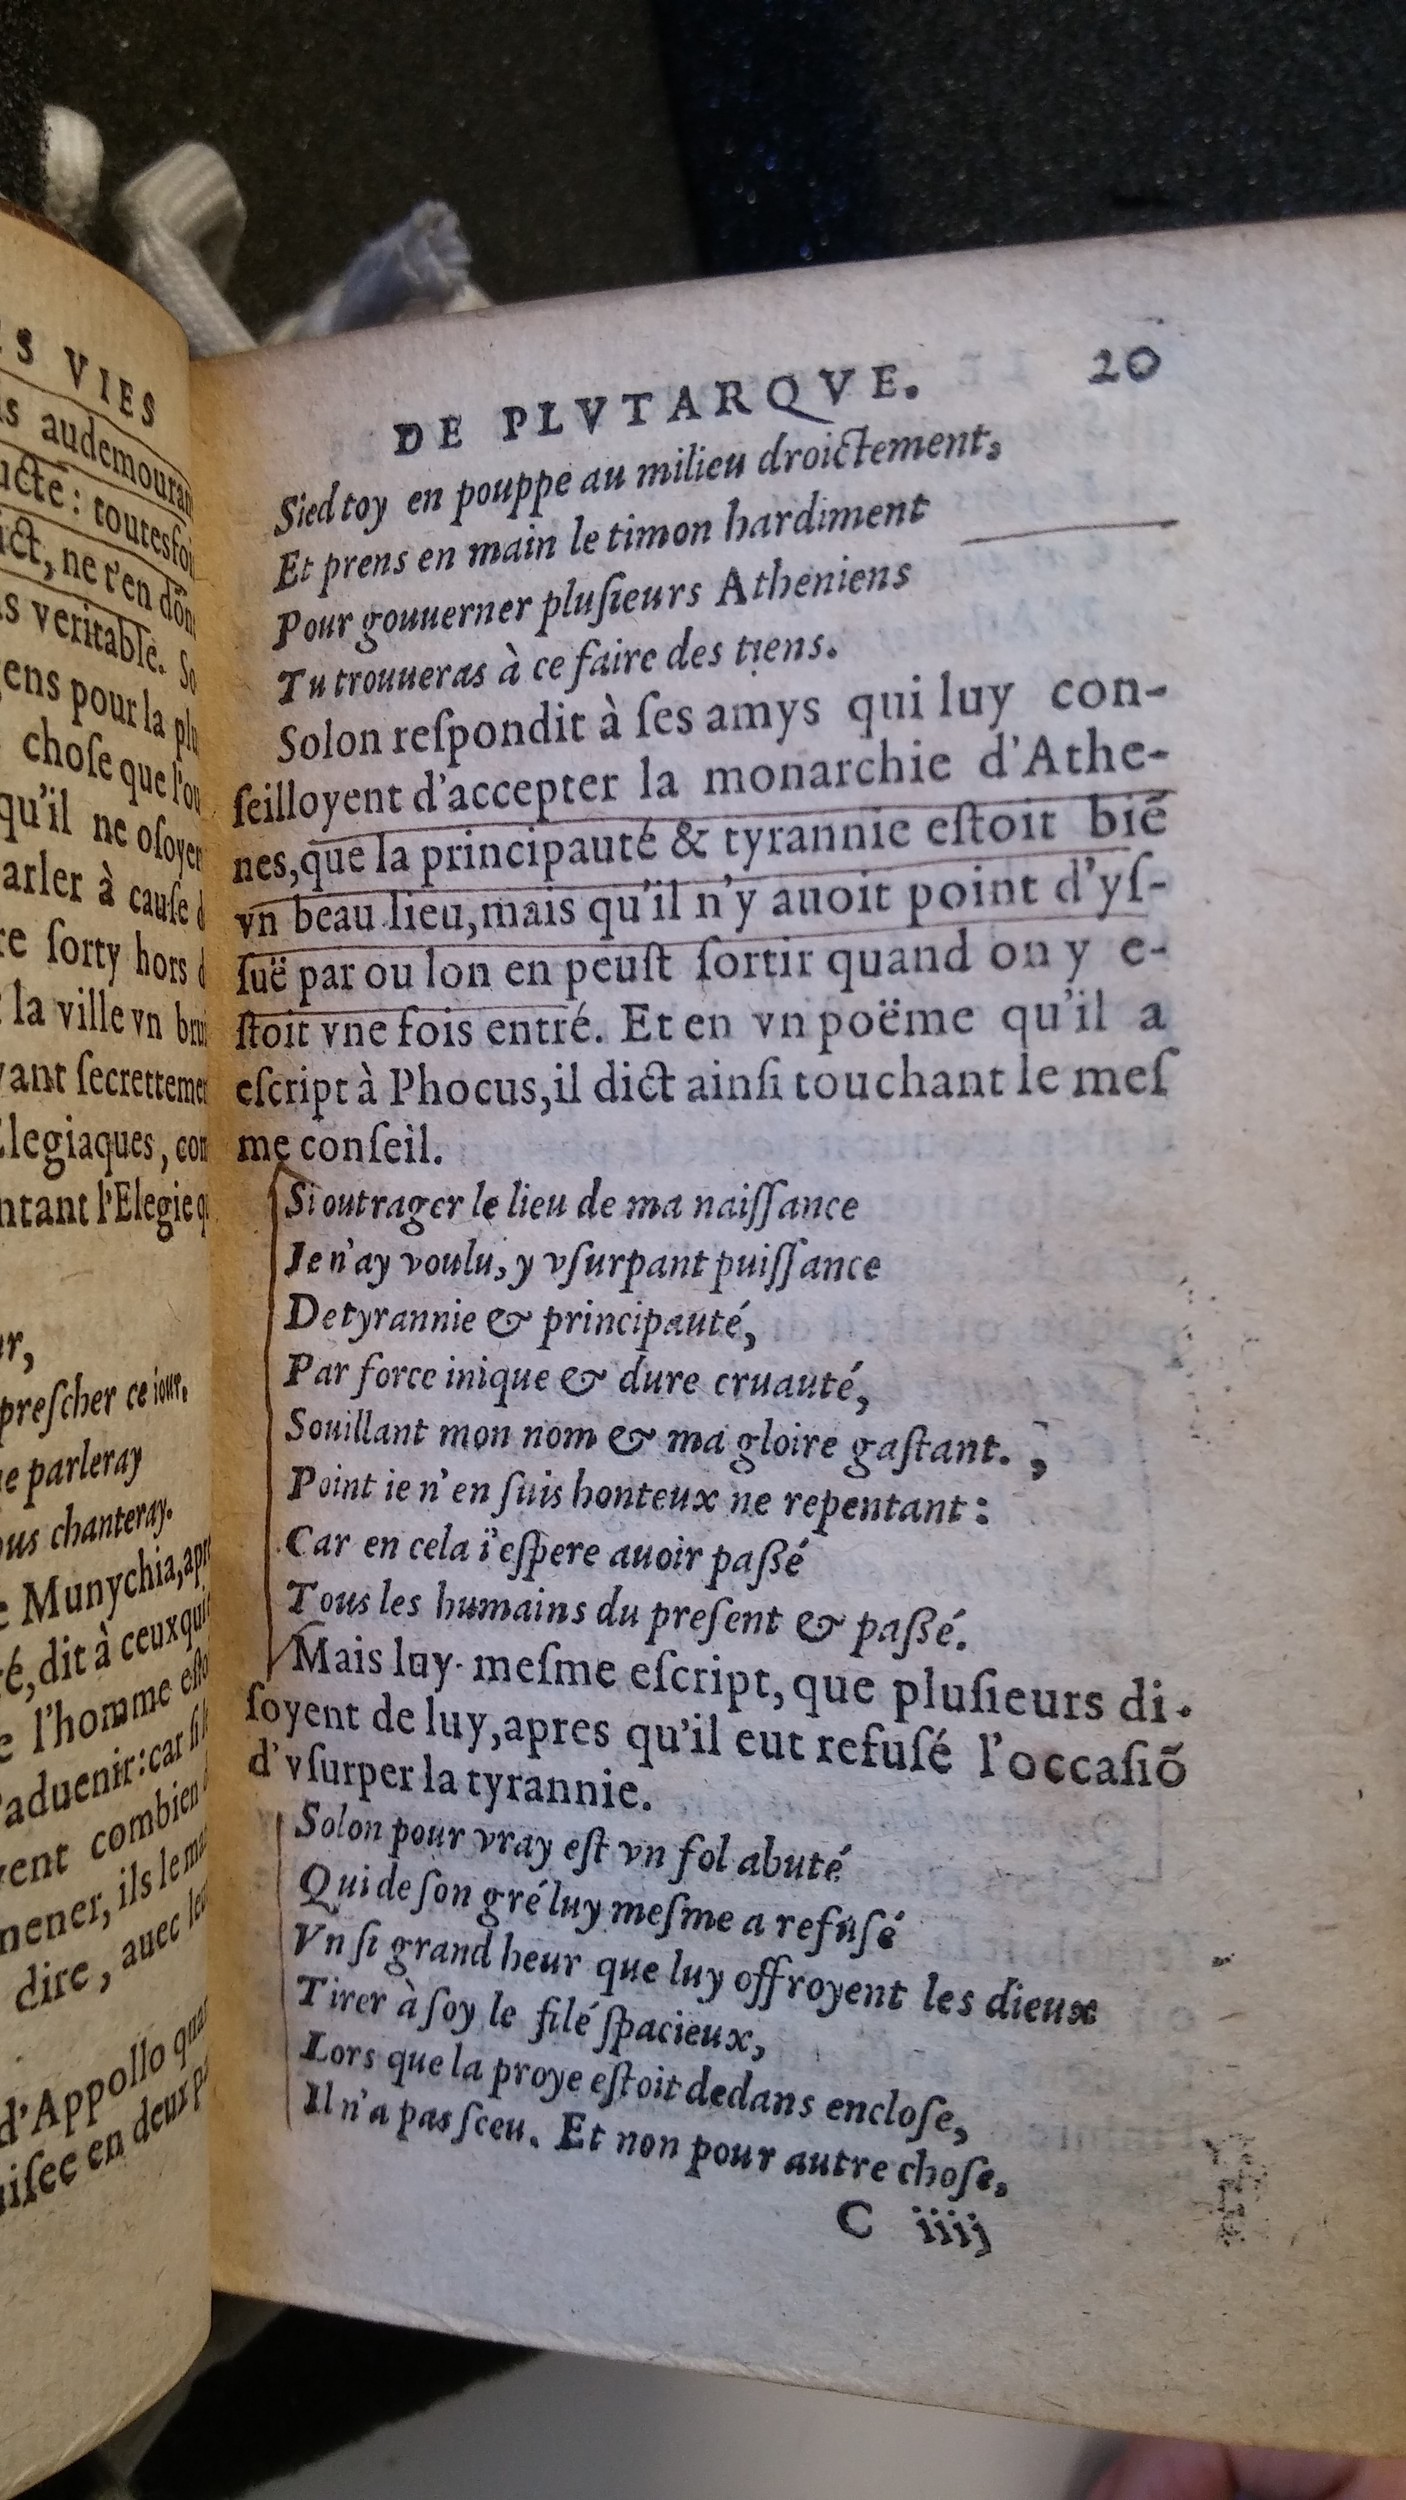 S VIES
audemouran
ucté: toutesfoi
ict, ne t'en dõn
s veritable. So
ens pour la plu
chose que l'ou
qu'il ne osoyen
arler à cause d
re sorty hors d
la ville vn brui
ant secrettemen
legiaques, com
ntant l'Elegie q
r,
prescher ce iour.
e parleray
ous chanteray.
e Munychia, apre
é, dit à ceux qui
e l'homme esto
'aduenir: car si
ent combien
ener, ils le man
dire, auec leu
d'Appollo quan
isee en deux pa
DE PLVTARQVE. 20
Sied toy en pouppe au milieu droictement,
Et prens en main le timon hardiment
Pour gouuerner pluſieurs Atheniens
Tu trouueras à ce faire des tiens.
Solon reſpondit à ſes amys qui luy con-
ſeilloyent d'accepter la monarchie d'Athe-
nes, que la principauté & tyrannie eſtoit biẽ
vn beau lieu, mais qu'il n'y auoit point d'yſ-
ſuë par ou lon en peuſt ſortir quand on y e-
ſtoit vne fois entré. Et en vn poëme qu'il a
eſcript à Phocus, il dict ainſi touchant le meſ
me conſeil.
Si outrager le lieu de ma naiſſance
Ie n'ay voulu, y vſurpant puiſſance
De tyrannie & principauté,
Par force inique & dure cruauté,
Souillant mon nom & ma gloire gaſtant. ,
Point ie n'en ſuis honteux ne repentant:
Car en cela i'eſpere auoir paßé
Tous les humains du preſent & paßé.
Mais luy-meſme eſcript, que pluſieurs di-
ſoyent de luy, apres qu'il eut refuſé l'occaſiõ
d'vſurper la tyrannie.
Solon pour vray eſt vn fol abuté
Qui de ſon gré luy meſme a refuſé
Vn ſi grand heur que luy offroyent les dieux
Tirer à ſoy le filé ſpacieux,
Lors que la proye eſtoit dedans encloſe,
Il n'a pas ſceu. Et non pour autre choſe,
C iiij